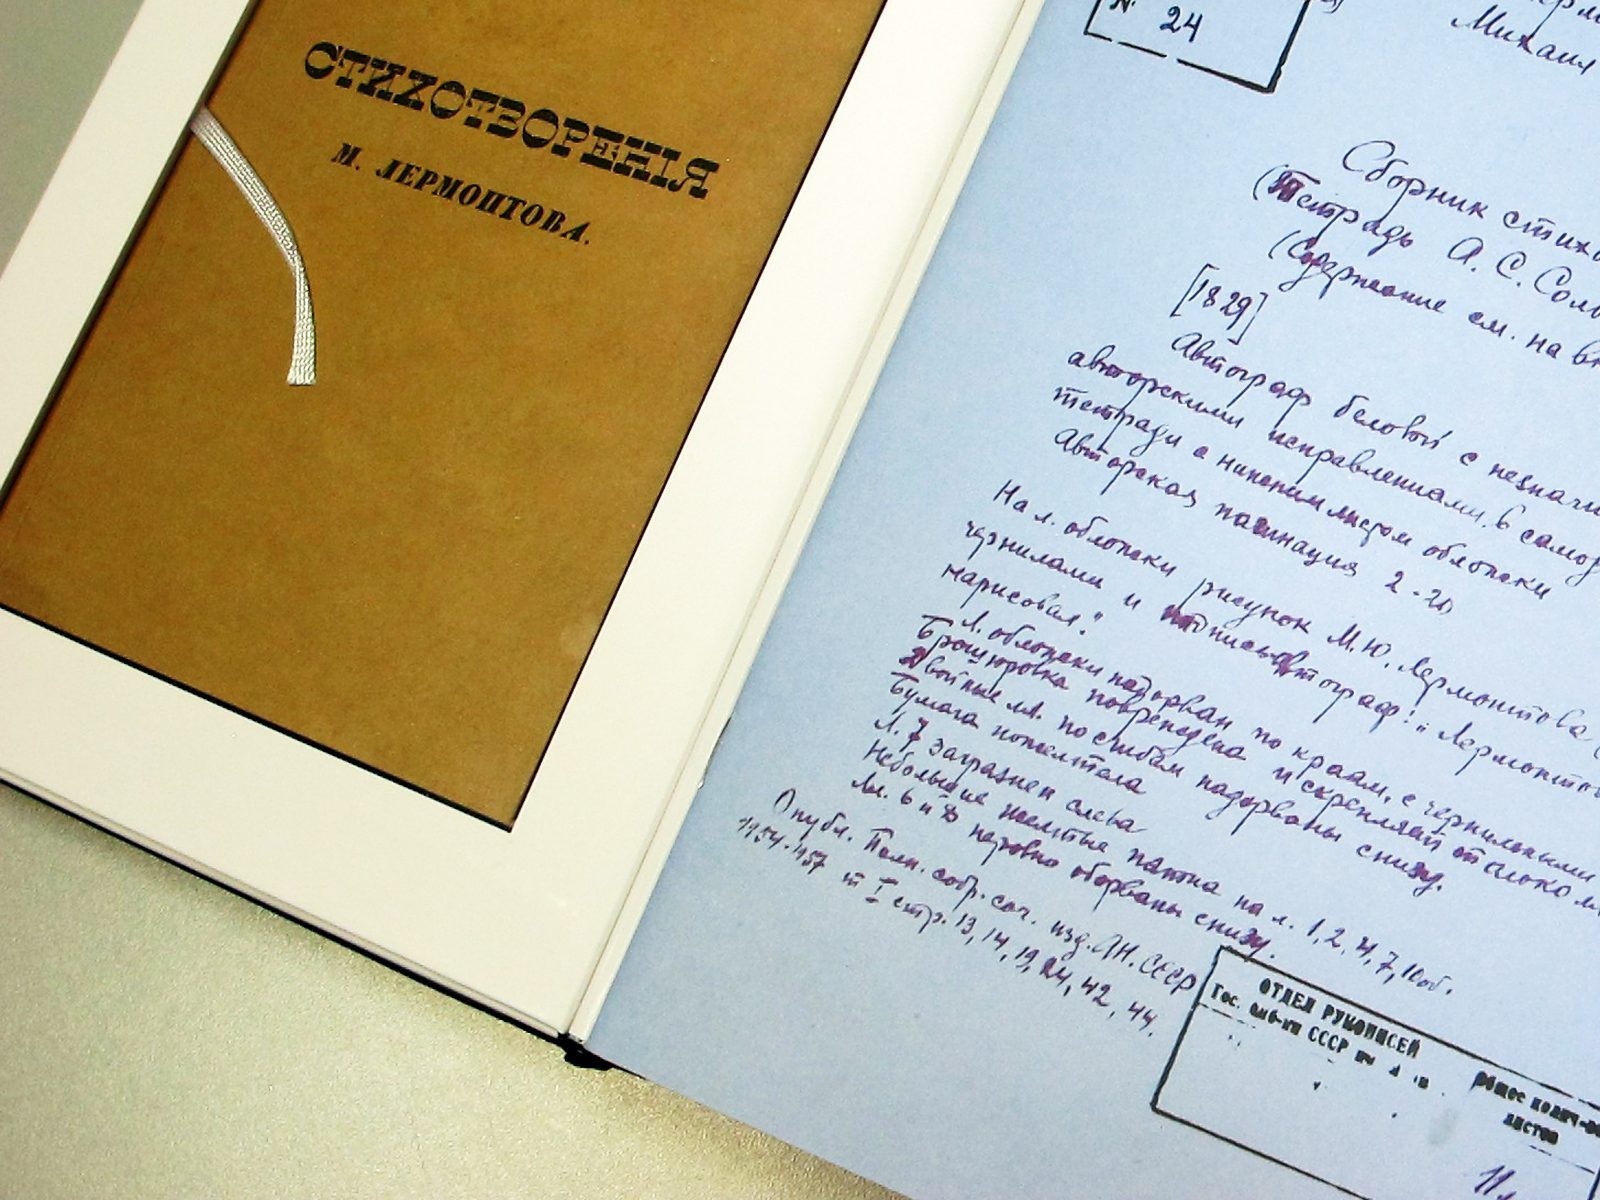 СТИХОТВОРЕНІЯ
М. ЛЕРМОНТОВА.
№ 24
Михаил
Сборник стихо
(Тетрадь А. С. Соло
(Содержание см. на вк
[1829]
Автограф беловой с незначи
авторскими исправлениями, в самод
тетради с нижним листом обложки
Авторская пагинация 2-20
На л. обложки рисунок М.Ю. Лермонтова
чернилами и подпись-автограф: "Лермонтов
нарисовал."
Л. обложки надорван по краям, с чернильными
Брошюровка повреждена и скрепляет только
Двойные лл. по сгибам надорваны снизу.
Бумага пожелтела
Л. 7 загрязнен слева
Небольшие желтые пятна на л. 1, 2, 4, 7, 10 об.
Лл. 6 и 8 неровно оборваны снизу.
Опубл. Полн. собр. соч. изд. АН. СССР
1954-1957 т I стр. 13, 14, 19, 24, 42, 44.
ОТДЕЛ РУКОПИСЕЙ
Гос. биб-ки СССР
общее колич-во
листов
11